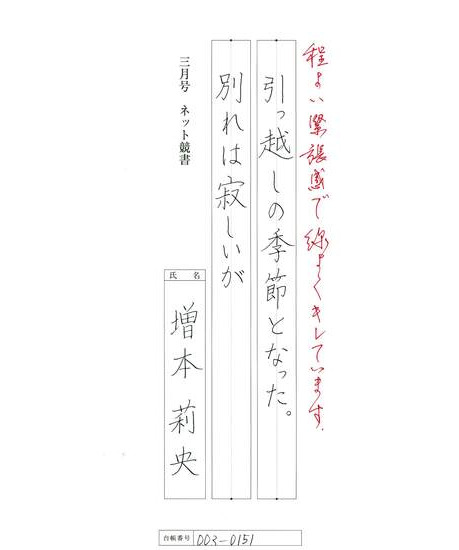 程よい緊張感で線よくキレています.
引っ越しの季節となった。
別れは寂しいが
三月号 ネット競書
氏名
増本莉央
台帳番号 003-0151